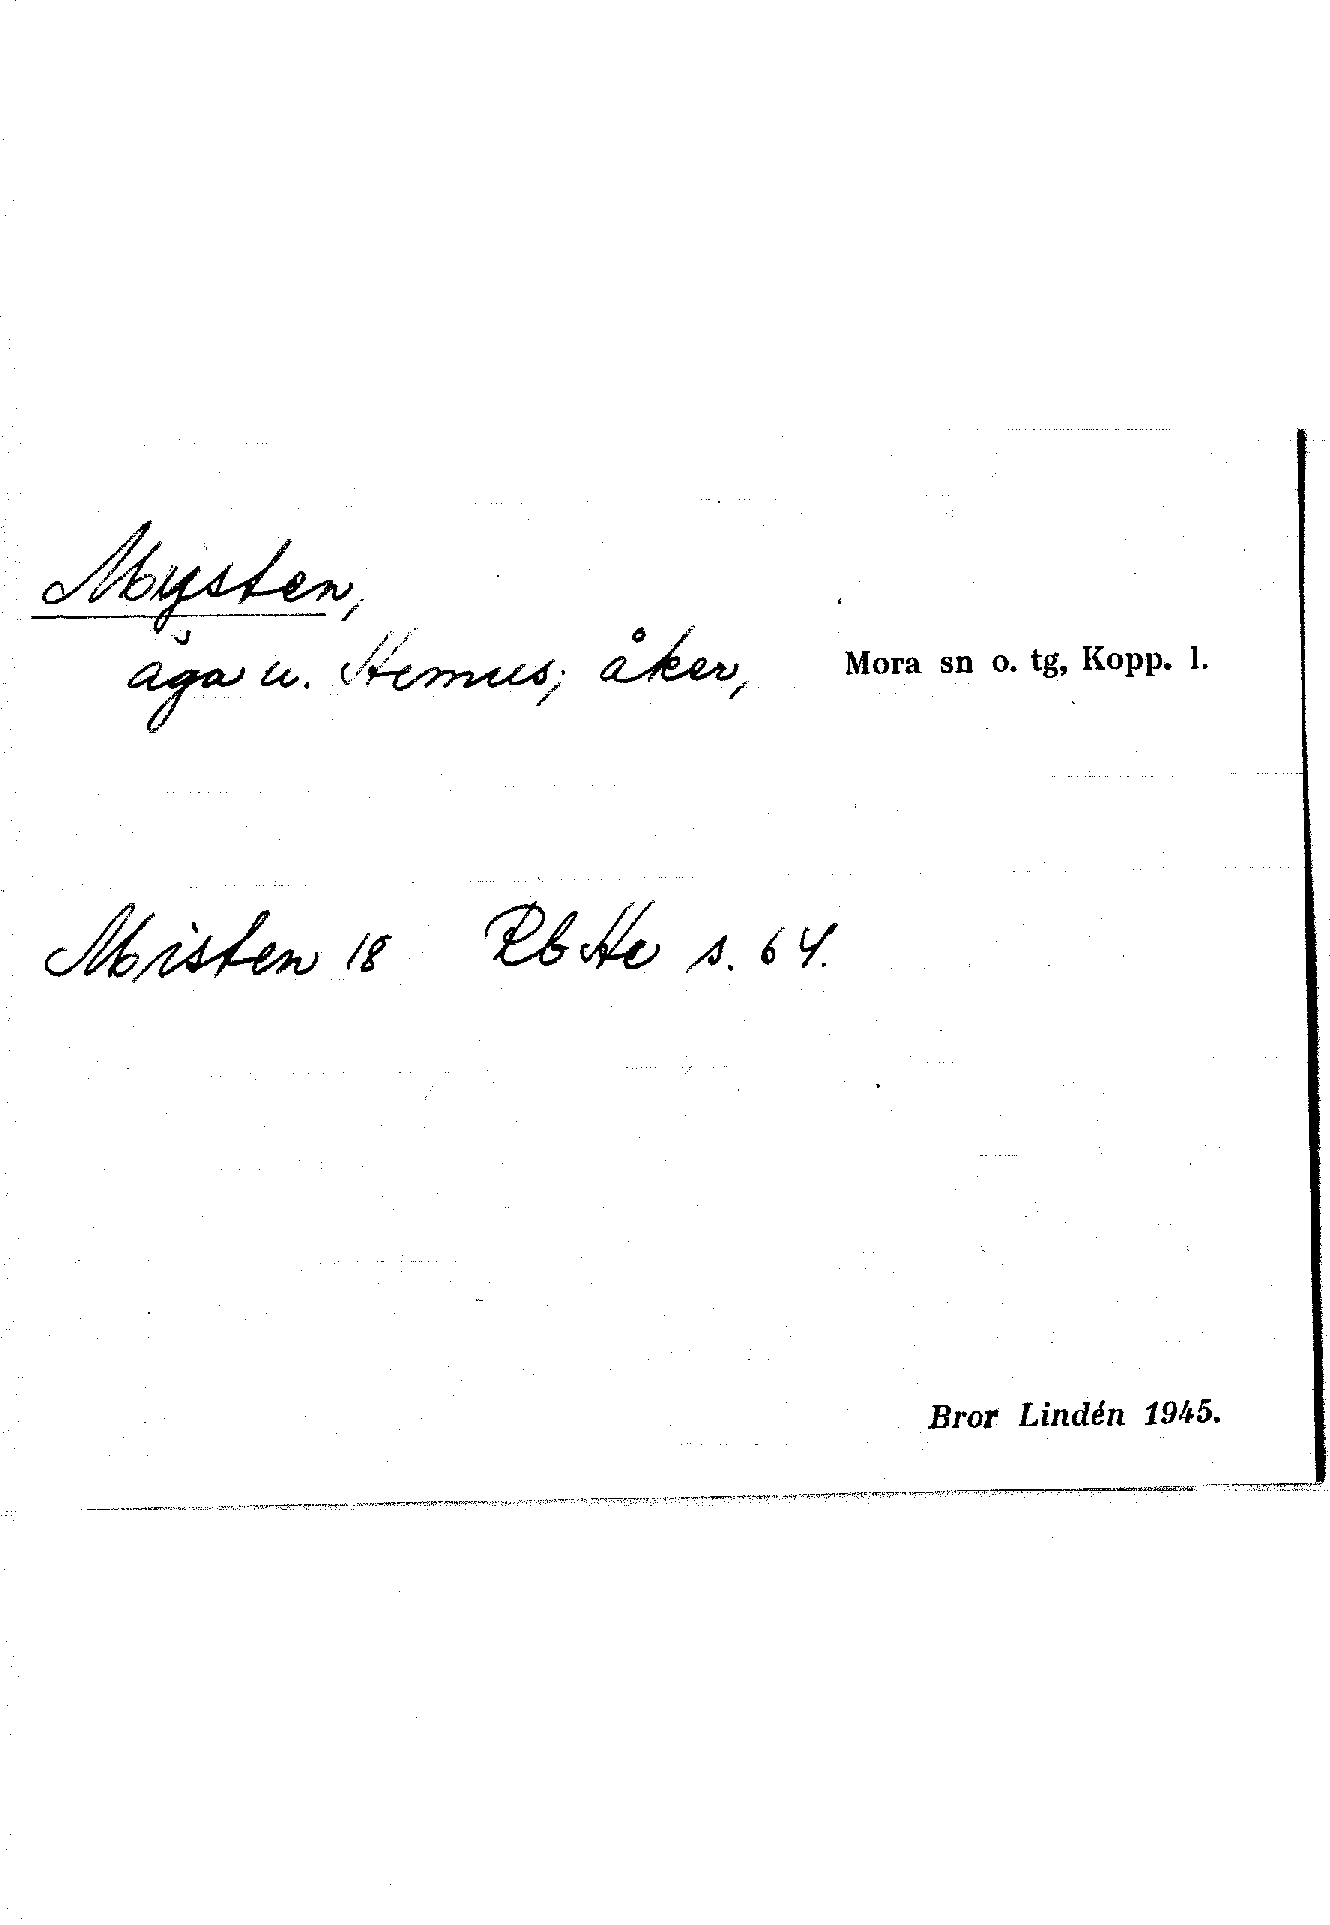 Mysten,
äga u. Hemus; åker, Mora sn o. tg, Kopp. l.
Misten 18 Rb He s. 64.
Bror Lindén 1945.